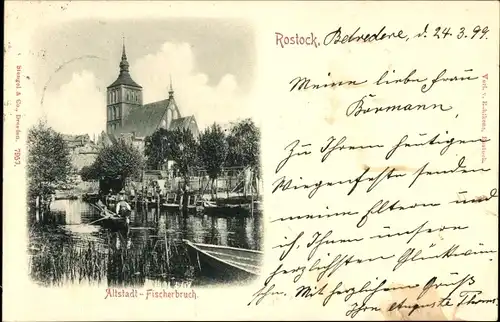 Rostock, Belvedere, d. 24.3.99.
Meine liebe Frau
Börmann,
Zu Ihrem heutigen
Wiegenfeste senden
meine Eltern und
ich, Ihnen unsern
herzlichsten Glückwun
sch. Mit herzlichem Gruß
Ihre Auguste
Altstadt-Fischerbruch.
Stengel & Co., Dresden. 7957.
Verl. v.